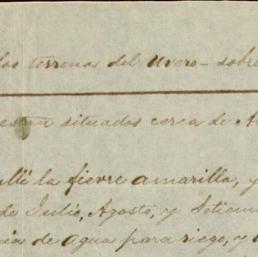 los terrenos del Uvero - sobre
estan situados cerca de A
alli la fiebre amarilla, y
de Julio, Agosto, y Setiem
cios de aguas para riego, y